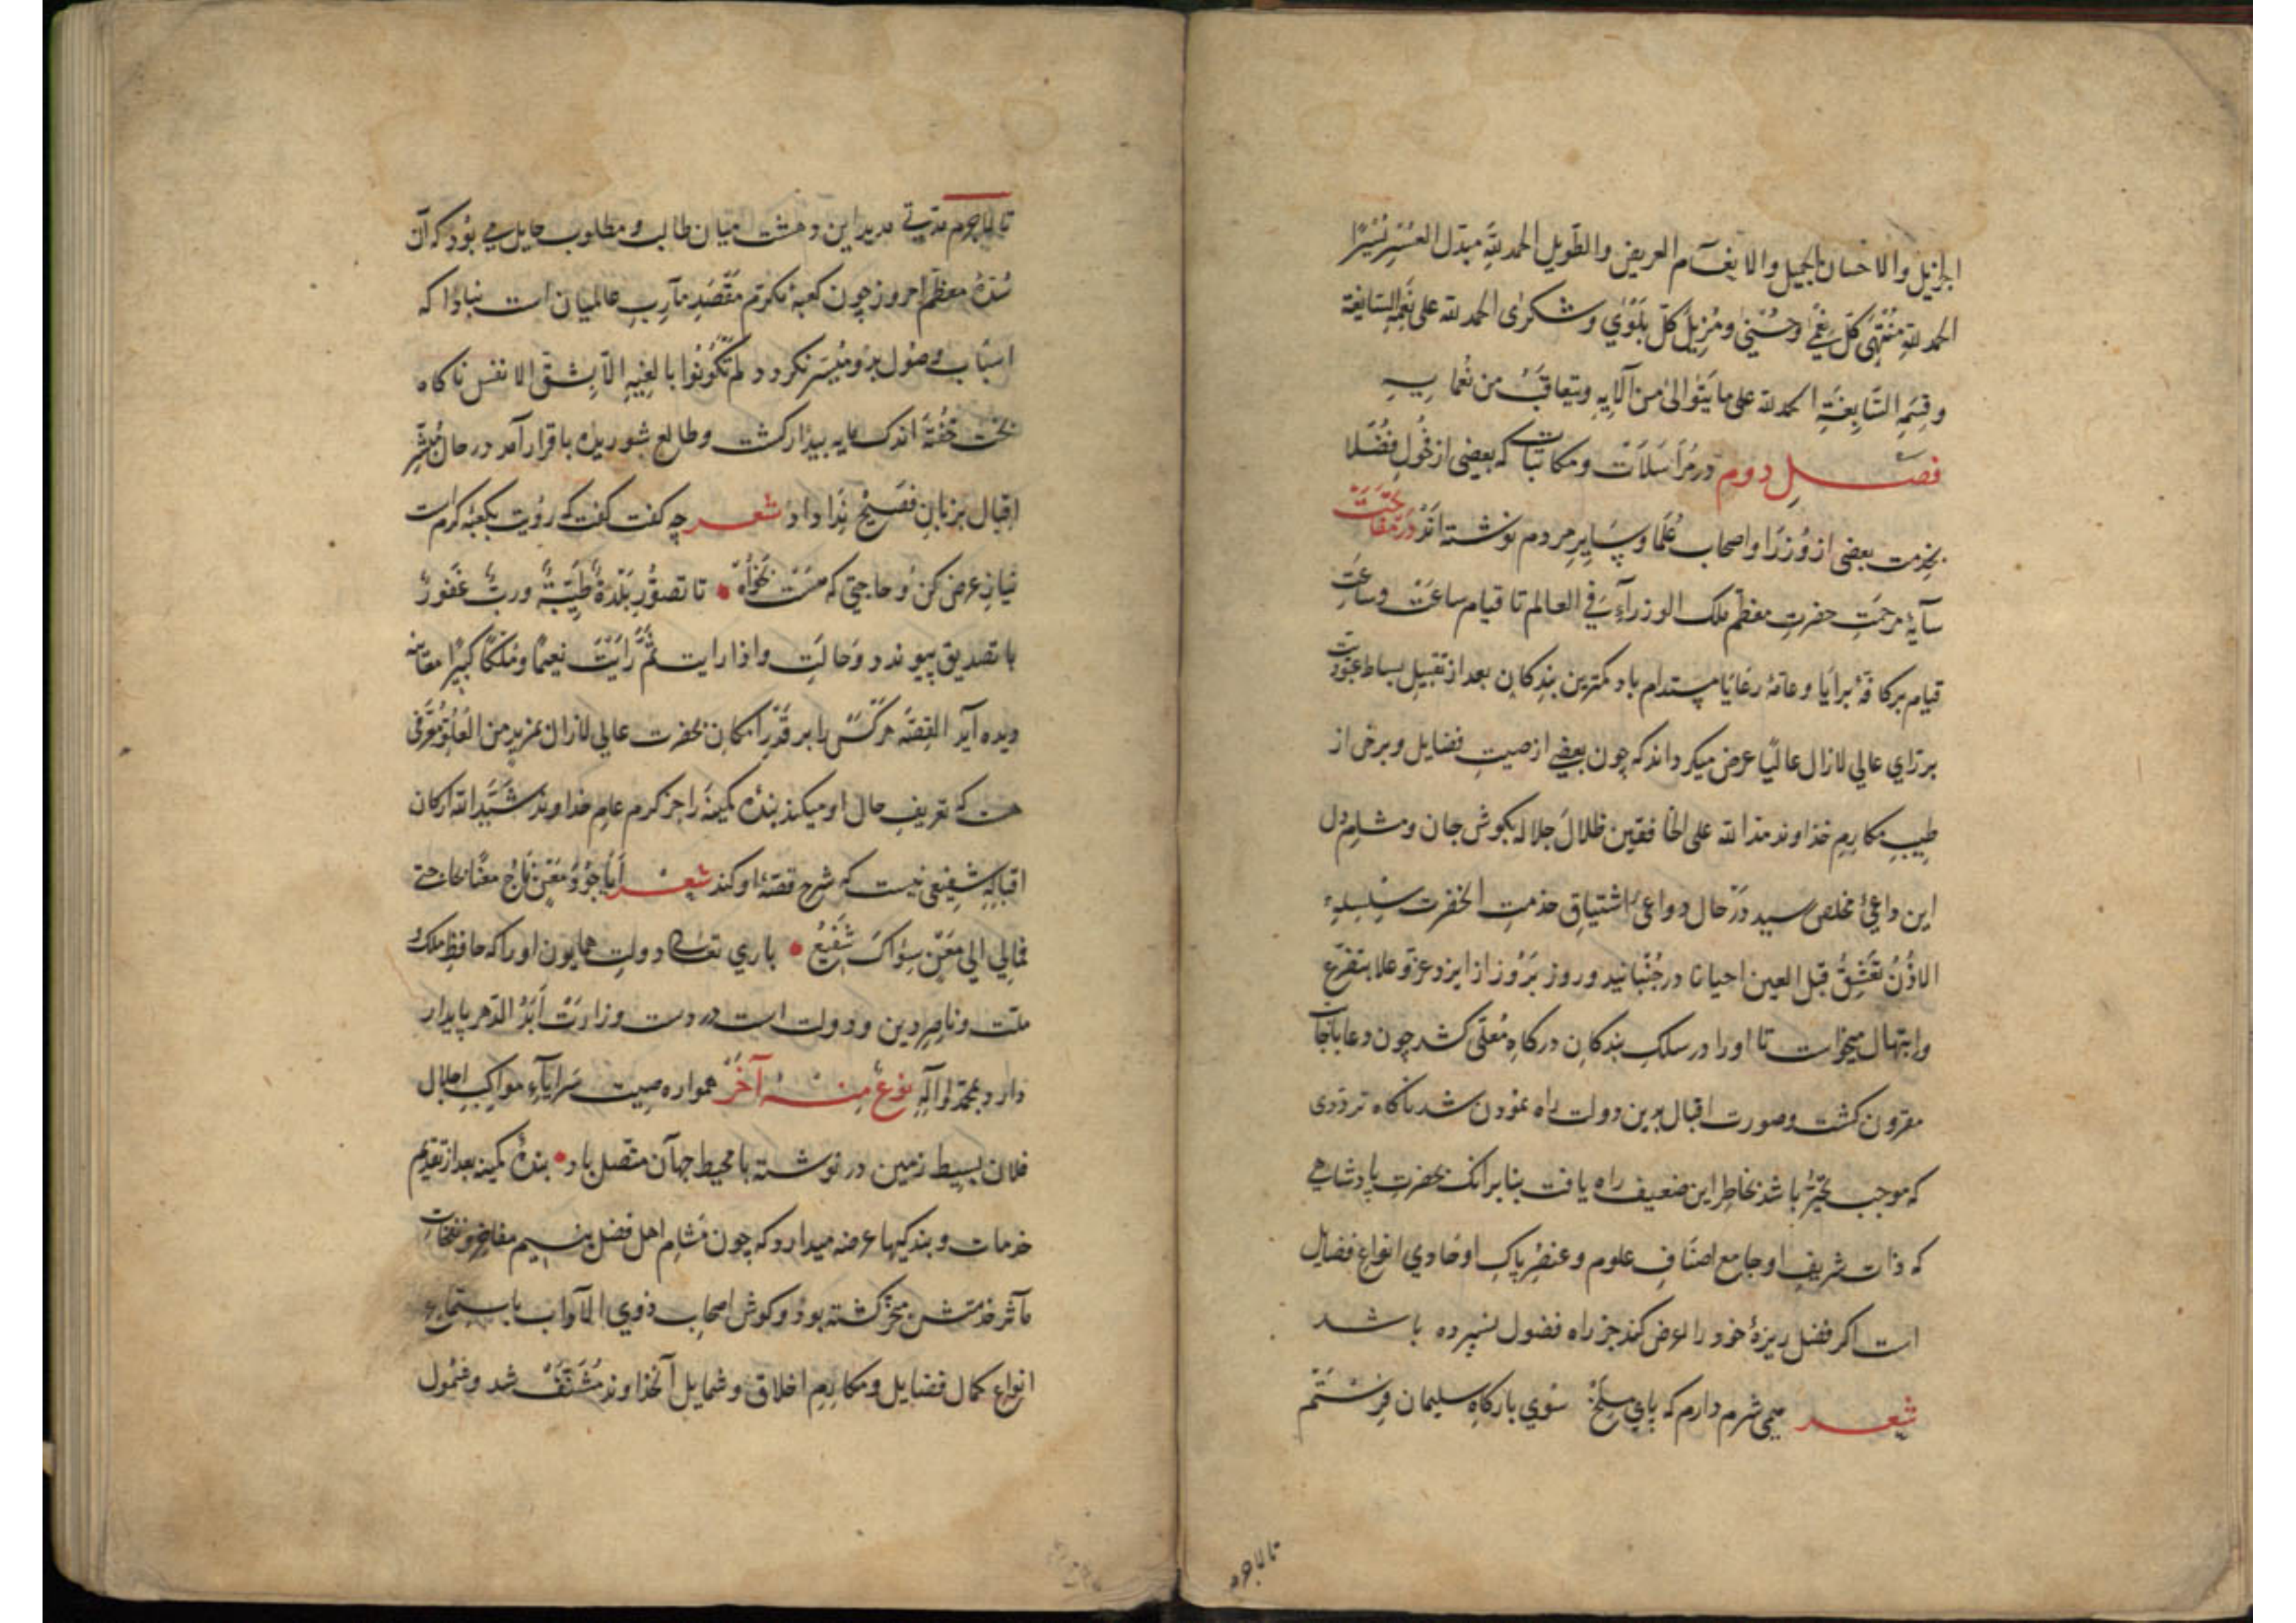 الجزیل والاحسان الجمیل والانعام العریض والطویل الحمد لله مبدل العسر یسرا
الحمد لله منتهی کل نعمی وحسنی ومزیل کل بلوی وشکوی الحمد لله علی نعمه السابغة
وقسمه السابغة الحمد لله علی ما یتوالی من آلایه ویتعاقب من نعمایه
فصل دوم در مراسلات ومکاتبات که بعضی از فحول فضلا
بخدمت بعضی از وزرا واصحاب علما وسایر مردم نوشته اند
سآیهٔ مرحمت حضرت معظم ملک الوزرآء فی العالم تا قیام ساعت وساعت
قیام بر کافهٔ برایا وعامهٔ رعایا مستدام باد کمترین بندکان بعد از تقبیل بساط عبودیت
بر رای عالی لازال عالیا عرض میکرداند که چون بعضی از صیت فضایل وبرخی از
طیب مکارم خداوند مد الله علی الخافقین ظلال جلاله بکوش جان ومشام دل
این داعی مخلص رسید در حال دواعی اشتیاق خدمت الحضرت سلسلهء
الاذن تعشق قبل العین احیانا در جنبانید وروز بروز از ایزد عز وعلا بتضرع
وابتهال میخواست تا او را در سلک بندکان درکاه معلی کشد چون دعا باجابت
مقرون کشت وصورت اقبال برین دولت راه نمودن شد ناکاه ترددی
که موجب تحیر باشد بخاطر این ضعیف راه یافت بنابرانک بحضرت پادشاهی
که ذات شریف او جامع اصناف علوم وعنصر پاک او حاوی انواع فضایل
است اکر فضل ریزهٔ خود را عرض کند جز راه فضول نسپرده باشد
شعر همی شرم دارم که پای ملخ سوی بارکاه سلیمان فرستم
تا لاجرم مدتی مدید این وحشت میان طالب ومطلوب حایل می بود که آن
سدهٔ معظم امروز چون کعبهٔ مکرم مقصد مآرب عالمیان است نبادا که
اسباب وصول برو میسر نکردد ولم تکونوا بالغیه الا بشق الانفس ناکاه
بخت خفته اندک مایه بیدار کشت وطالع شوریده باقرار آمد در حال مبشر
اقبال بزبان فصیح ندا داد شعر چه کفت کفت که رؤیت بکعبهٔ کرم است
نیاز عرض کن و حاجتی که هست بخواه تا تصور بلدة طیبة ورب غفور
با تصدیق پیوندد وحالت واذا رایت ثم رایت نعیما وملکا کبیرا معاینه
دیده آید القصه هر کس را بر قدر امکان بحضرت عالی لازال بمزید من العلو معرفی
هست که تعریف حال او میکند بنده کمینه را جز کرم عام خداوند شید الله ارکان
اقباله شفیعی نیست که شرح قصهٔ او کند شعر ایا جود معن ناج معنا بحاجتی
فمالی الی معن سواک شفیع باری تعالی دولت همایون او را که حافظ ملک و
ملت وناصر دین ودولت است در دست وزارت ابد الدهر پایدار
دارد بمحمد وآله نوع منه آخر همواره صیت سرایآء مواکب اجلال
فلان بسیط زمین در نوشته با محیط جهان متصل باد بندهٔ کمینه بعد از تقدیم
خدمات وبندکیها عرضه میدارد که چون مشام اهل فضل بنسیم مفاخر ونفحات
مآثر خدمتش معطر کشته بود وکوش اصحاب ذوی الآداب باستماع
انواع کمال فضایل ومکارم اخلاق وشمایل آنخداوند مشنف شد وشمول
تا لاجرم